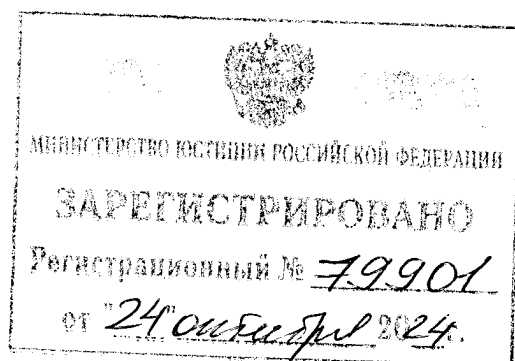 МИНИСТЕРСТВО ЮСТИЦИИ РОССИЙСКОЙ ФЕДЕРАЦИИ
ЗАРЕГИСТРИРОВАНО
Регистрационный № 79901
от "24" октября 2024.